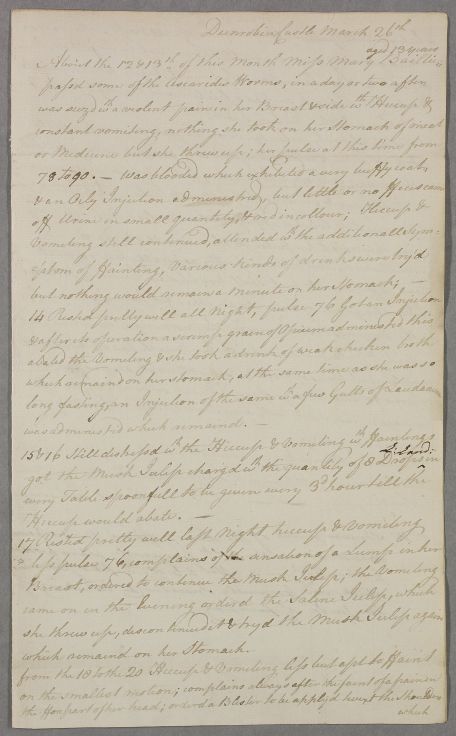 Dunrobin Castle March 26th
aged 13 years
About the 12 & 13th of this Month Miss Mary Baillie
passd some of the ascarides Worms, in a day or two after
was seizd wth a violent pain in her Breast & side wth Hiccup &
constant vomiting, nothing she took on her Stomach of meat
or Medecine but she threw up; her pulse at this time from
78 to 90. — was blooded which exhibited a very buffy coat,
& an Oily Injection administred, but little or no ffeces came
off Urine in small quantity, & red in colour; Hiccup &
Vomiting still continued, attended wth the additionall Symp-
-tom of ffainting, Various kinds of drink were try'd
but nothing would remain a minute on her Stomack; —
14 Rested pritty well all Night, pulse 76 Got an Injection
& after its operation a scrimp grain of Opium administred this
abated the Vomiting & she took a drink of weak chicken broth
which remaind on her stomach, at the same time as she was so
long fasting, an Injection of the same wth a few Gutts of Laudan
was administred which remaind. —
15 & 16 Still distressd wth the Hiccup & Vomiting wth ffaintings
got the Musk Julep chargd wth the quantity of 8 Drops in
every Table spoonfull to be given every 3d hour till the
Hiccup would abate. —
17 Rested pretty well last Night hiccup & Vomiting
less pulse 76, complains of the sensation of a Lump in her
Breast, ordered to continue the Musk Julep; the Vomiting
came on in the Evening orderd the Saline Julep, which
she threw up, discontinued it & try'd the Musk Julep again
which remaind on her Stomach.
from the 18 to the 20 Hiccup & Vomiting less but apt to ffaint
on the smallest motion; complains always after the faint of a pain in
the ffore part of her head; orderd a Blister to be apply'd twixt the Shoulders
which